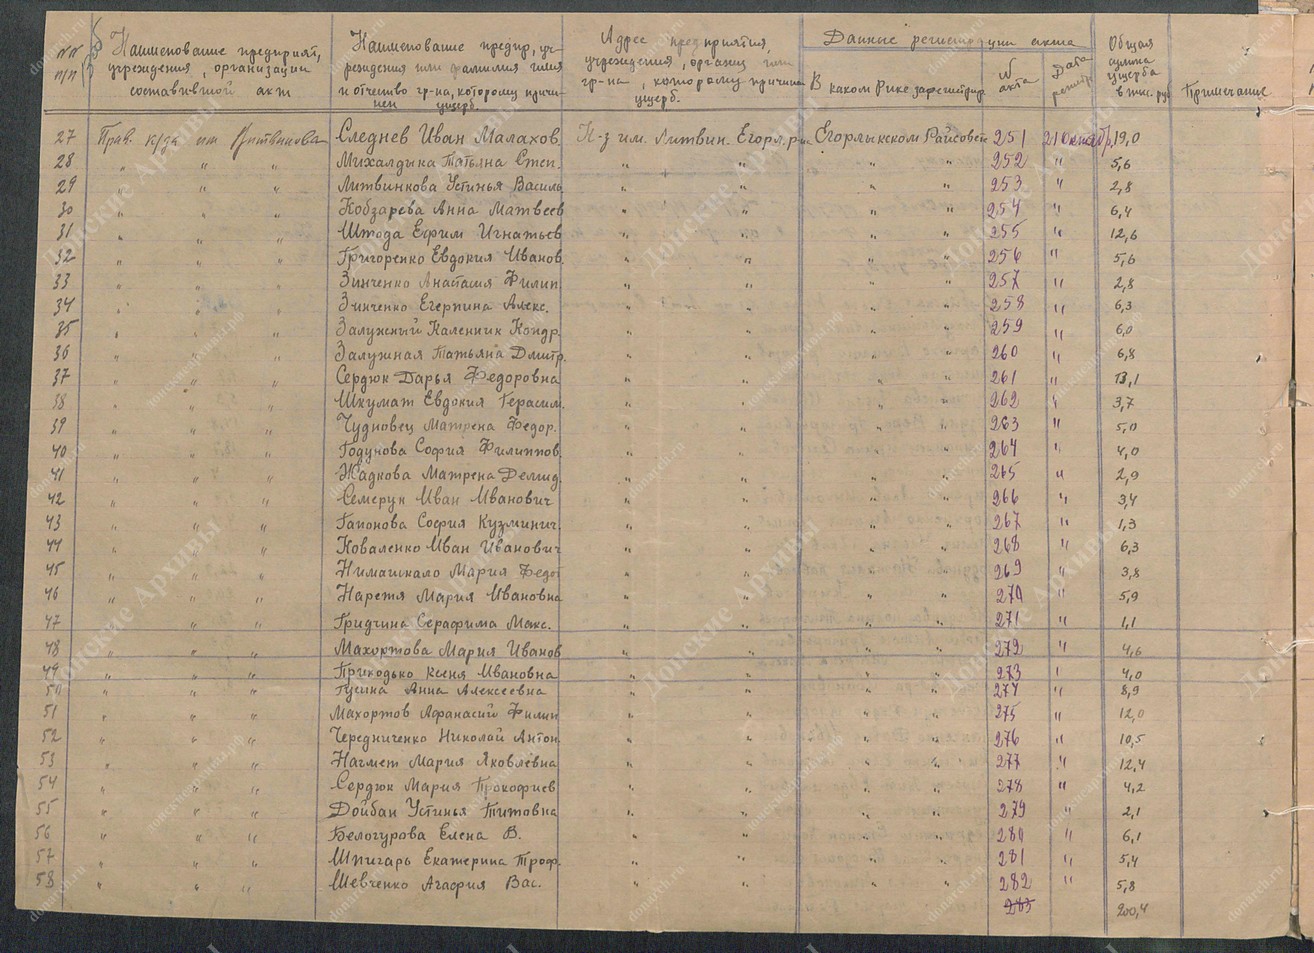 №№ п/п Наименование предприят, учреждения, организации составившей акт Наименование предпр, уч-реждения или фамилия имя и отчество гр-на, которому причи-нен ущерб. Адрес предприятия, учреждения, организ или гр-на, которому причинен ущерб. Данные регистрации акта В каком Рике зарегистрир № акта Дата регистр Общая сумма ущерба в тыс. руб Примечание
27 Прав. к/за им Литвинова Следнев Иван Малахов. К-з им. Литвин. Егорл. р-на Егорлыкском Райсовет 251 21 октябр. 19,0
28 " " " Михалдыка Татьяна Степ. " " " " 252 " 5,6
29 " " " Литвинкова Устинья Василь. " " " " 253 " 2,8
30 " " " Кобзарева Анна Матвеев " " " " 254 " 6,4
31 " " " Штода Ефим Игнатьев " " " " 255 " 12,6
32 " " " Григоренко Евдокия Иванов. " " " " 256 " 5,6
33 " " " Зинченко Анатасия Филип. " " " " 257 " 2,8
34 " " " Зинченко Егерпина Алекс. " " " " 258 " 6,3
35 " " " Залужный Каленник Кондр. " " " " 259 " 6,0
36 " " " Залужная Татьяна Дмитр. " " " " 260 " 6,8
37 " " " Сердюк Дарья Федоровна " " " " 261 " 13,1
38 " " " Шкумат Евдокия Герасим. " " " " 262 " 3,7
39 " " " Чудновец Матрена Федор. " " " " 263 " 5,0
40 " " " Годунова София Филиппов. " " " " 264 " 4,0
41 " " " Жадкова Матрена Демид. " " " " 265 " 2,9
42 " " " Семерун Иван Иванович " " " " 266 " 3,4
43 " " " Гапонова София Кузминич. " " " " 267 " 1,3
44 " " " Коваленко Иван Иванович " " " " 268 " 6,3
45 " " " Нимашкало Мария Федот " " " " 269 " 3,8
46 " " " Наретя Мария Ивановна " " " " 270 " 5,9
47 " " " Гридчина Серафима Макс. " " " " 271 " 1,1
48 " " " Махортова Мария Иванов " " " " 272 " 4,6
49 " " " Приходько Ксеня Ивановна " " " " 273 " 4,0
50 " " " Гусина Анна Алексеевна " " " " 274 " 8,9
51 " " " Махортов Афанасий Филип " " " " 275 " 12,0
52 " " " Чередниченко Николай Антон. " " " " 276 " 10,5
53 " " " Нагмет Мария Яковлевна " " " " 277 " 12,4
54 " " " Сердюк Мария Прокофиев " " " " 278 " 4,2
55 " " " Дойбан Устинья Титовна " " " " 279 " 2,1
56 " " " Белогурова Елена В. " " " " 280 " 6,1
57 " " " Шпигарь Екатерина Троф. " " " " 281 " 5,4
58 " " " Шевченко Агафия Вас. " " " " 282 " 5,8
283 200,4